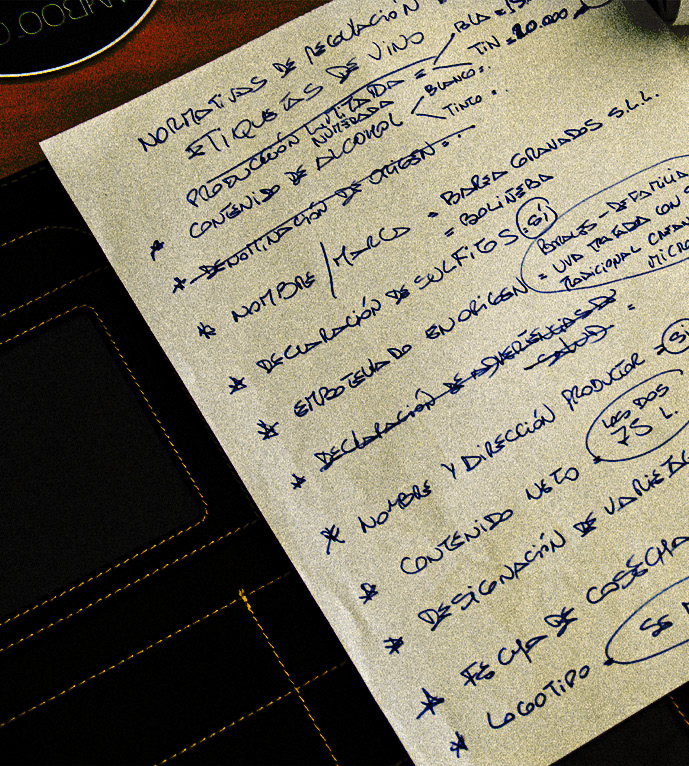 NORMATIVAS DE REGULACIÓN
ETIQUETAS DE VINO
PRODUCCIÓN LIMITADA = BLA =
TIN = 20.000
NUMERADA
* CONTENIDO DE ALCOHOL BLANCO = .
TINTO = .
* DENOMINACIÓN DE ORIGEN = .
* NOMBRE / MARCA = BAREA GRANADOS S.L.L.
= BOLIÑEBA
* DECLARACIÓN DE SULFITOS = SÍ
* EMBOTELLADO EN ORIGEN
BARALES - DE FAMILIA
= UVA TRATADA CON
TRADICIONAL
MICRO
* DECLARACIÓN DE ADVERTENCIAS DE =
SALUD
* NOMBRE Y DIRECCIÓN PRODUCTOR = SI
* CONTENIDO NETO = LAS DOS
75 L.
* DESIGNACIÓN DE
* FECHA DE COSECHA
* LOGOTIPO = SE